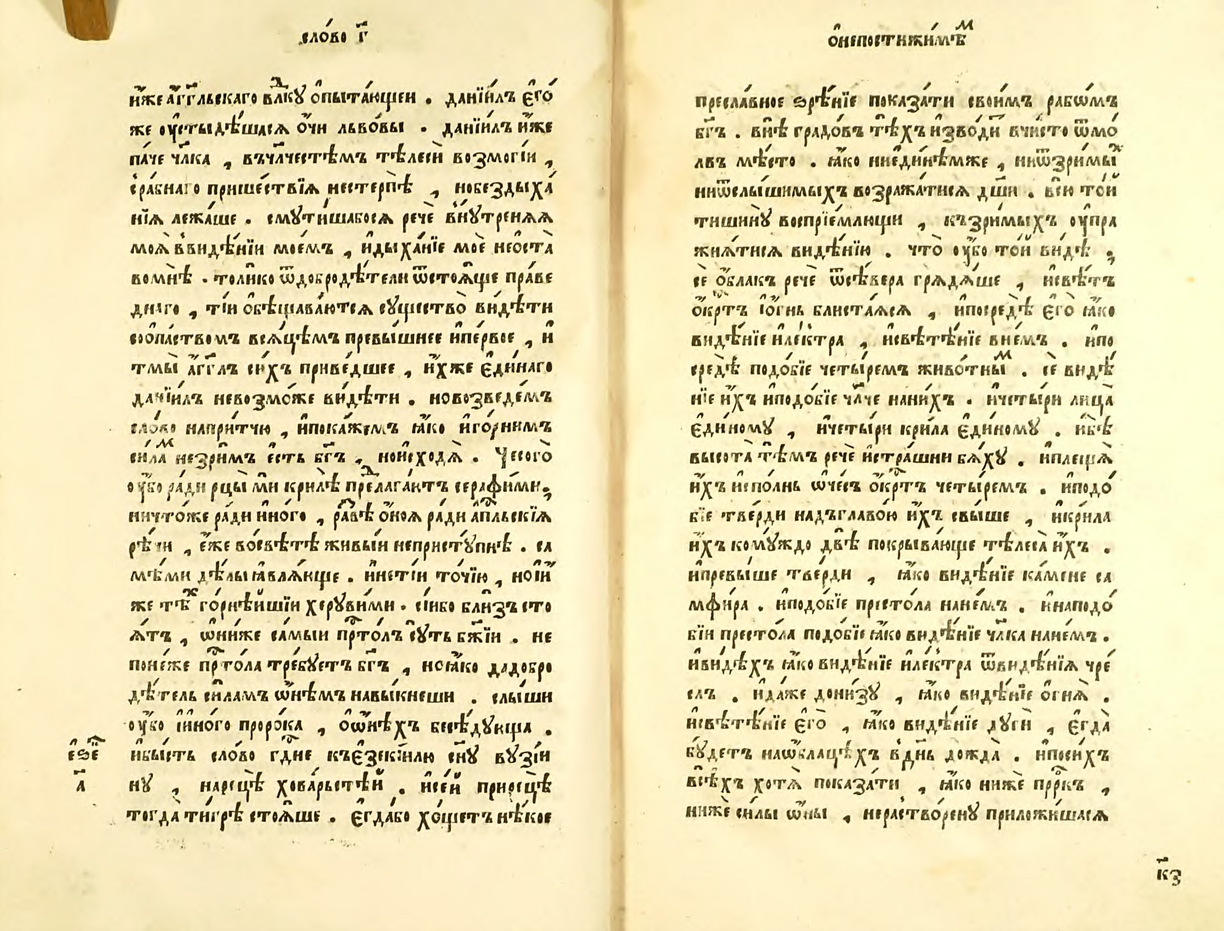 сло́во г҃
и҆́же а҆́гг҃льскаго влⷣкꙋ ѻ҆пыта́ющеи . данїи́лъ є҆го́
же ᲂу҆стыдѣ́шасѧ ѻ҆чи льво́вы . данїи́лъ и҆́же
па́че чл҃ка , въчл҃честѣмъ тѣлесѝ возмогі́и ,
сра́бнаго прише́ствїѧ нестерпѣ̀ , нобездыха́
нїѧ лежа́ше . смꙋти́шабосѧ речѐ вн́ꙋтренѧѧ
моѧ̀ ввидѣ́нїи мое́мъ , и҆дыха́нїе моѐ неѡста̀
вомнѣ̀ . толи́ко ѿдобродѣ́тели ѿстоѧ́ще пра́ве
днаго , ті́и ѻ҆бѣщава́ютсѧ сꙋщество̀ ви́дѣти
сооп҆а́ствомъ всѧ́цѣмъ превы́шнее и҆пе́рвое , и҆
тмы̀ а҆́гг҃лъ си́хъ приве́дшее , и҆́хже є҆ди́наго
данїи́лъ невозмо́же ви́дѣти . новозведе́мъ
сло́во напри́тчю , и҆пока́жемъ ꙗ҆́ко и҆го́рнимъ
си́лаⷨ незри́мъ є҆́сть бг҃ъ , ноисходѧ̀ . Чесого̀
ᲂу҆́бо ра́ди рцы́ ми криле̑ прⷣелага́ютъ серафи́ми ,
ничто́же ра́ди и҆но́го , ра́звѣ ѻ҆́ноѧ ра́ди а҆пⷭ҇льскїѧ
рѣ́чи , є҆́же восвѣ́тѣ живы́и непристꙋ́пнѣ . са
мѣ́ми дѣ́лы ꙗ҆влѧ́юще . и҆нетіи то́чїю , ноі҆и҆
же тѣⷯ го́рнѣйшїи херꙋви́ми . сі́ибо бли́зъ сто
ѧ́тъ , ѻ҆ни́же са́мыи прⷭ҇то́лъ сꙋ́ть бж҃їи . не
поне́же прⷭ҇то́ла тре́бꙋетъ бг҃ъ , ноꙗ҆́ко дадобро
дѣ́тель си́ламъ ѻ҆нѣ́мъ навы́кнеши . слы́ши
ᲂу҆́бо и҆но́го проро́ка , ѻ҆ѻ҆нѣ́хъ бесѣ́дꙋюща .
и҆бы́сть сло́во гдⷭ҇не къє҆зекі́илю сн҃ꙋ вꙋзі́и
нꙋ , нарецѣ̀ ховарьстѣ́й . и҆се́й прирецѣ̀
тогда̀ тигрѣ̀ стоѧ́ше . є҆гда́бо хо́щетъ нѣ́кое
є҆зеⷦ҇
а҃
ѻ҆непостижи́мѣⷨ
пресла́вное зрѣ́нїе показа́ти свои́мъ рабѡ́мъ
бг҃ъ . внѣ̀ градо́въ тѣ́хъ и҆зво́дѝ вчи́сто ѿмо
лвъ мѣ́сто . ꙗ҆́ко ниеди́нѣмже , ниѿзри́мыⷯ
ниѿслы́шимыхъ возража́тисѧ дш҃и . все́ю то́й
тишино́ю воспрїе́млющи , къзри́мыхъ ᲂу҆пра
жнѧ́тисѧ видѣ́нию . что̀ ᲂу҆́бо то́й ви́дѣ ,
се ѻ҆́блакъ речѐ ѿсѣ́вера грѧдѧ́ше , и҆свѣ́тъ
ѻ҆́крⷭ҇тъ і҆ѻ҆́гнь блиста́ѧсѧ , и҆посредѣ̀ є҆го̀ ꙗ҆́ко
видѣ́нїе и҆ле́ктра , и҆свѣтѣ́нїе вне́мъ . и҆по
средѣ̀ подо́бїе четы́ремъ живо́тныⷨ . се видѣ́
нїе и҆́хъ и҆подо́бїе чл҃че нани́хъ . и҆четы́ри лица̀
є҆ди́номꙋ , и҆четы́ри крила̀ є҆ди́номꙋ . и҆бѣ̀
высота̀ тѣ́мъ речѐ и҆стра́шни бѧ́хꙋ . и҆плещѧ̀
и҆́хъ и҆спо́лнь ѻ҆че́съ ѻ҆́крⷭ҇тъ четы́ремъ . и҆подо́
бїе тве́рди надъглаво́ю и҆́хъ свы́ше , и҆крила̀
и҆́хъ комꙋ́ждо двѣ̀ покрыва́юще тѣлеса̀ и҆́хъ .
и҆превы́ше тве́рди , ꙗ҆́ко видѣ́нїе ка́мене са
мфи́ра . и҆подо́бїе престо́ла нане́мъ . и҆наподо́
бїи престо́ла подо́бїе ꙗ҆́ко видѣ́нїе чл҃ка нане́мъ .
и҆ви́дѣхъ ꙗ҆́ко видѣ́нїе и҆ле́ктра ѿвидѣ́нїѧ чре́
слъ . и҆да́же дони́зꙋ , ꙗ҆́ко видѣ́нїе ѻ҆гнѧ̀ .
и҆свѣтѣ́нїе є҆го̀ , ꙗ҆́ко видѣ́нїе дꙋгѝ , є҆гда̀
бꙋ́детъ наѻ҆́блацѣхъ вдн҃ь дожда̀ . и҆поси́хъ
всѣ́хъ хотѧ̀ показа́ти , ꙗ҆́ко ниже́ прⷪ҇ркъ ,
ниже́ си́лы ѻ҆́ны , нерастворе́нꙋ приложи́шасѧ
к҃з